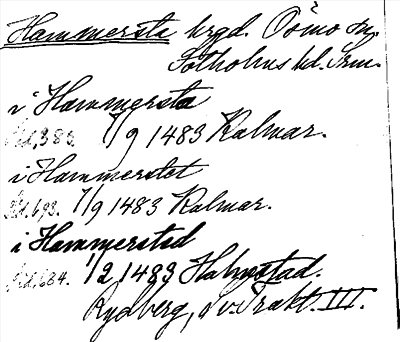 Hammersta hrgd. Ösmo sn.
Sotholms hd. Srm.
i Hammersta
Sid. 383. 7/9 1483 Kalmar.
i Hammerstet
Sid. 693. 7/9 1483 Kalmar.
i Hammersted
Sid. 684. 1/2 1483 Halmstad.
Rydberg, Sv. Trakt. III.